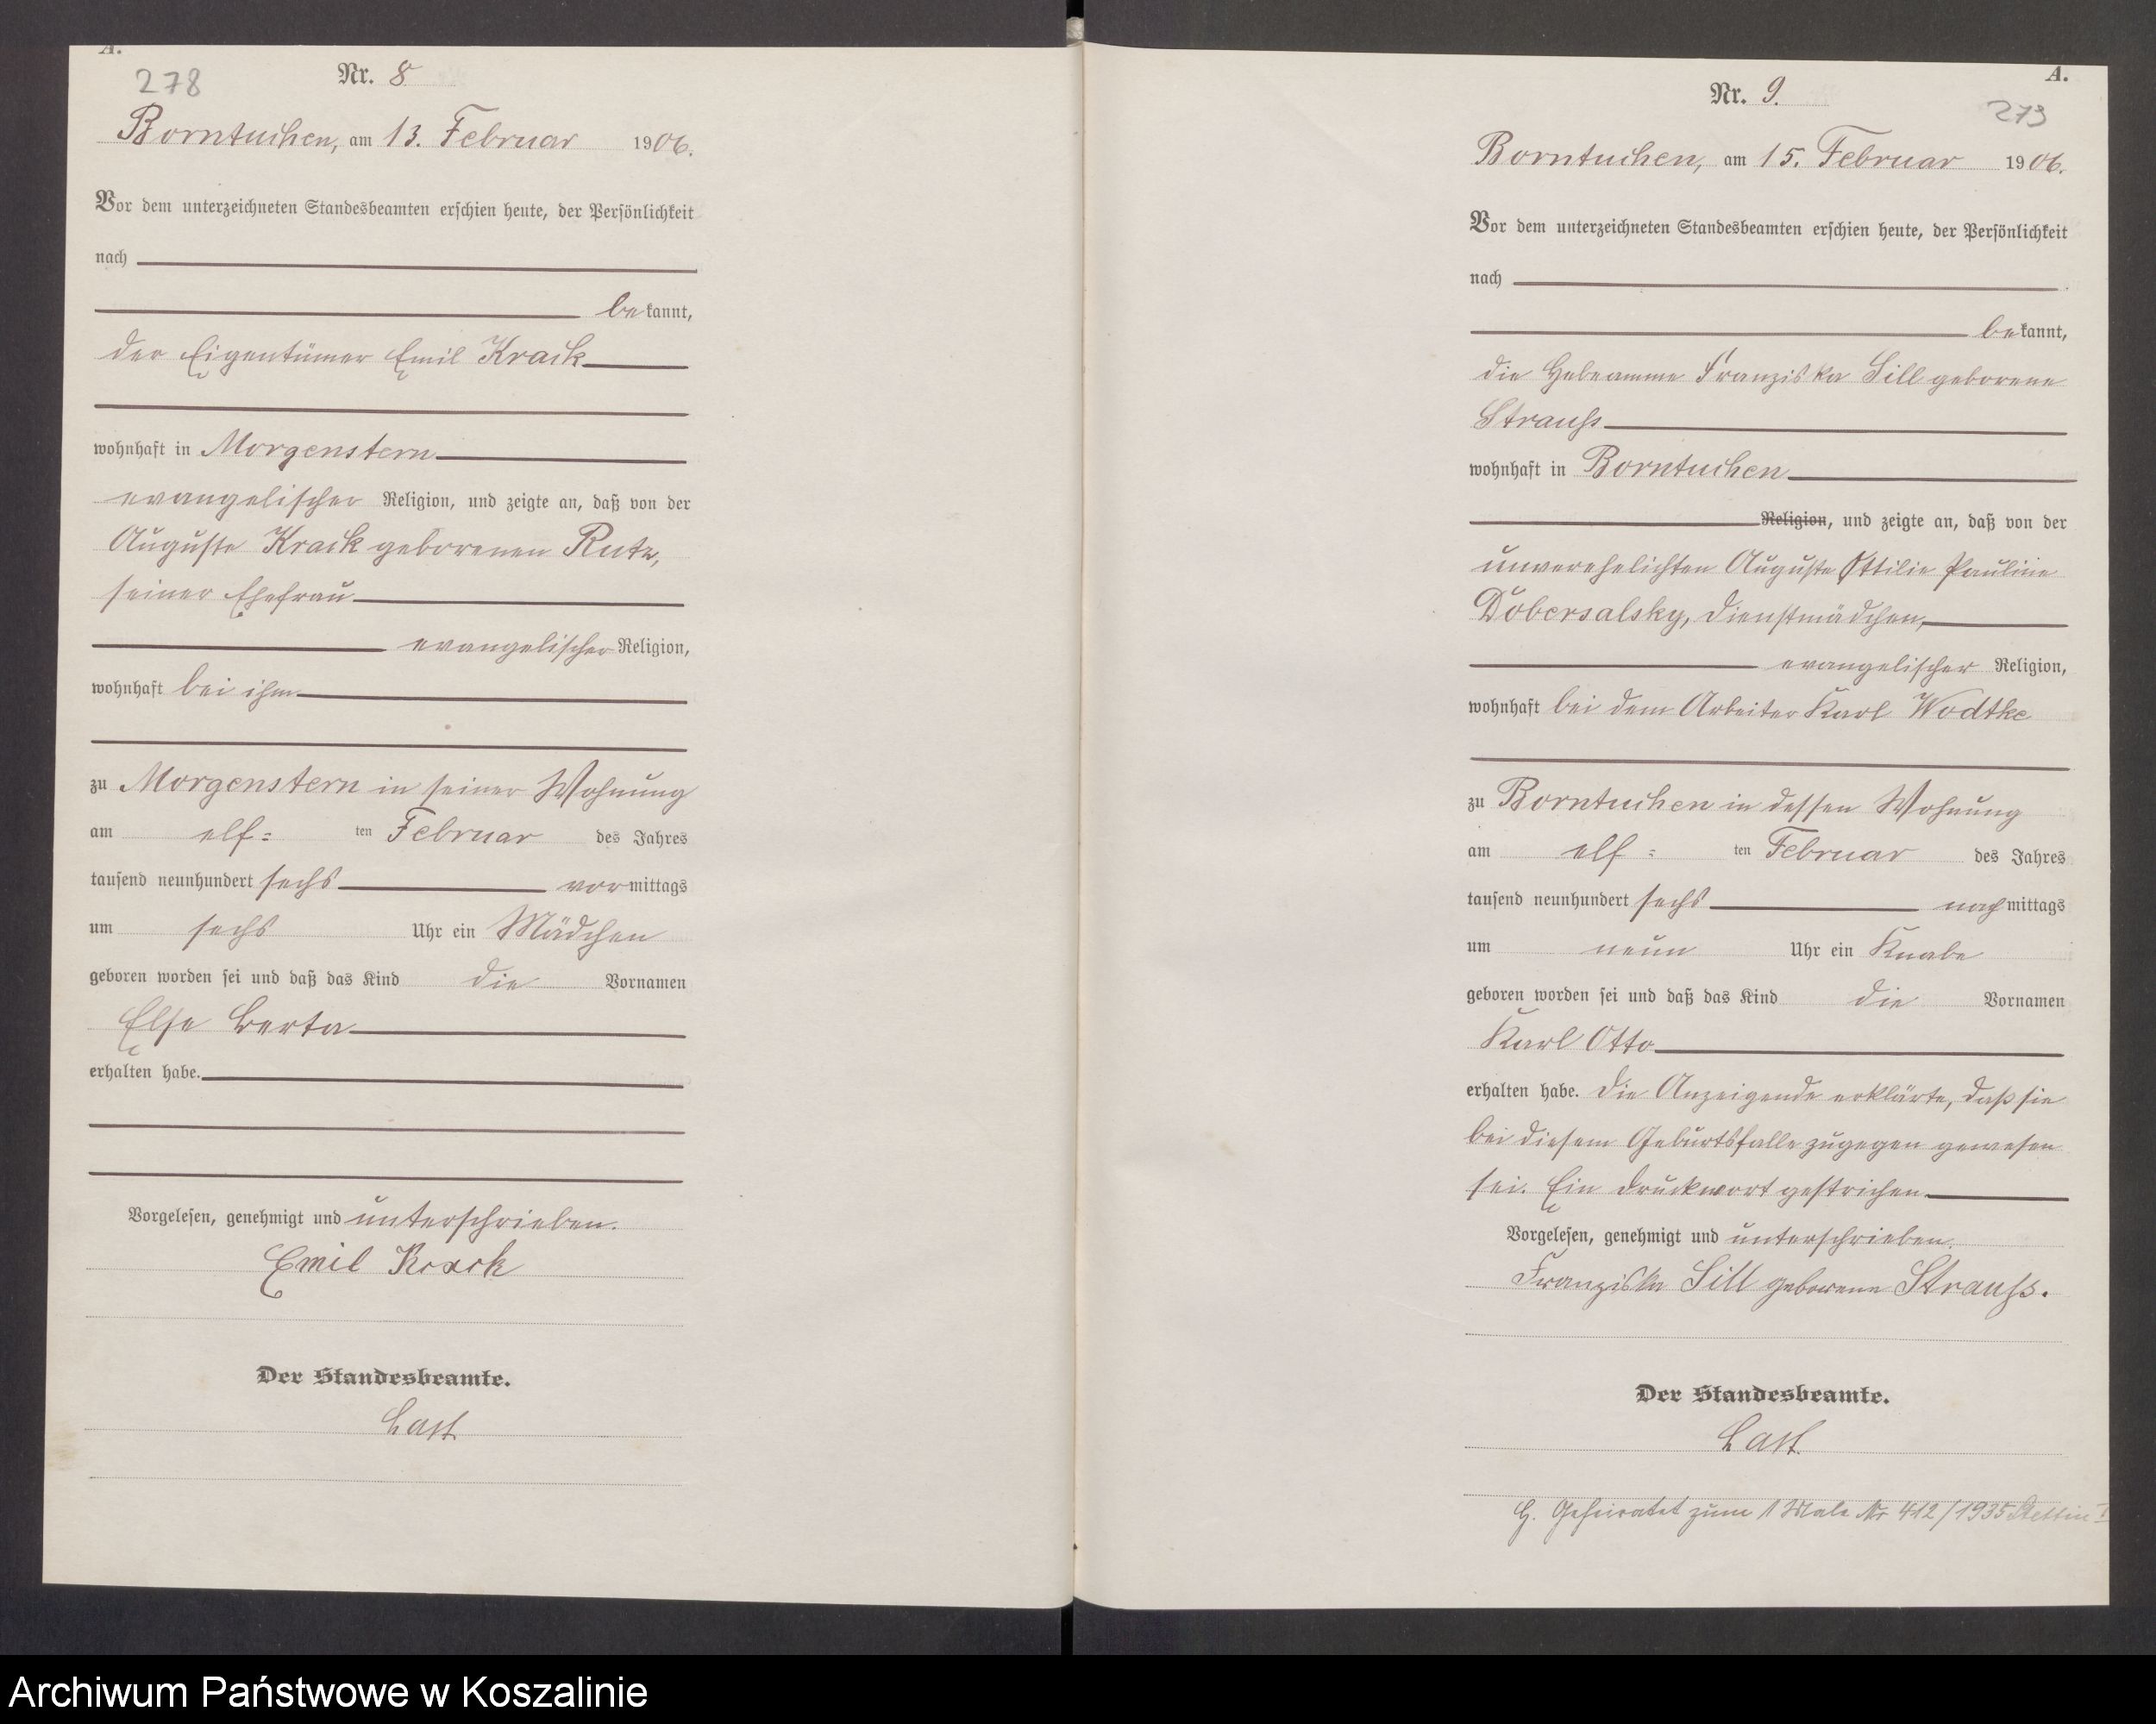 A.
278
Nr. 8
Borntuchen, am 13. Februar 1906.
Vor dem unterzeichneten Standesbeamten erschien heute, der Persönlichkeit
nach
bekannt,
der Eigentümer Emil Krack
wohnhaft in Morgenstern
evangelischer Religion, und zeigte an, daß von der
Auguste Krack geborenen Rutz,
seiner Ehefrau
evangelischer Religion,
wohnhaft bei ihm
zu Morgenstern in seiner Wohnung
am elf= ten Februar des Jahres
tausend neunhundert sechs vormittags
um sechs Uhr ein Mädchen
geboren worden sei und daß das Kind die Vornamen
Else Berta
erhalten habe.
Vorgelesen, genehmigt und unterschrieben.
Emil Krack
Der Standesbeamte.
Last
A.
Nr. 9.
279
Borntuchen, am 15. Februar 1906.
Vor dem unterzeichneten Standesbeamten erschien heute, der Persönlichkeit
nach
bekannt,
die Hebeamme Franziska Sill geborene
Strauss
wohnhaft in Borntuchen
Religion, und zeigte an, daß von der
unverehelichten Auguste Ottilie Pauline
Dobersalsky, Dienstmädchen,
evangelischer Religion,
wohnhaft bei dem Arbeiter Karl Wodtke
zu Borntuchen in dessen Wohnung
am elf = ten Februar des Jahres
tausend neunhundert sechs nachmittags
um neun Uhr ein Knabe
geboren worden sei und daß das Kind die Vornamen
Karl Otto
erhalten habe. Die Anzeigende erklärte, daß sie
bei diesem Geburtsfalle zugegen gewesen
sei. Ein Druckwort gestrichen.
Vorgelesen, genehmigt und unterschrieben.
Franziska Sill geborene Strauss.
Der Standesbeamte.
Last
G. Geheiratet zum 1 Male Nr 412/1935 Stettin I
Archiwum Państwowe w Koszalinie